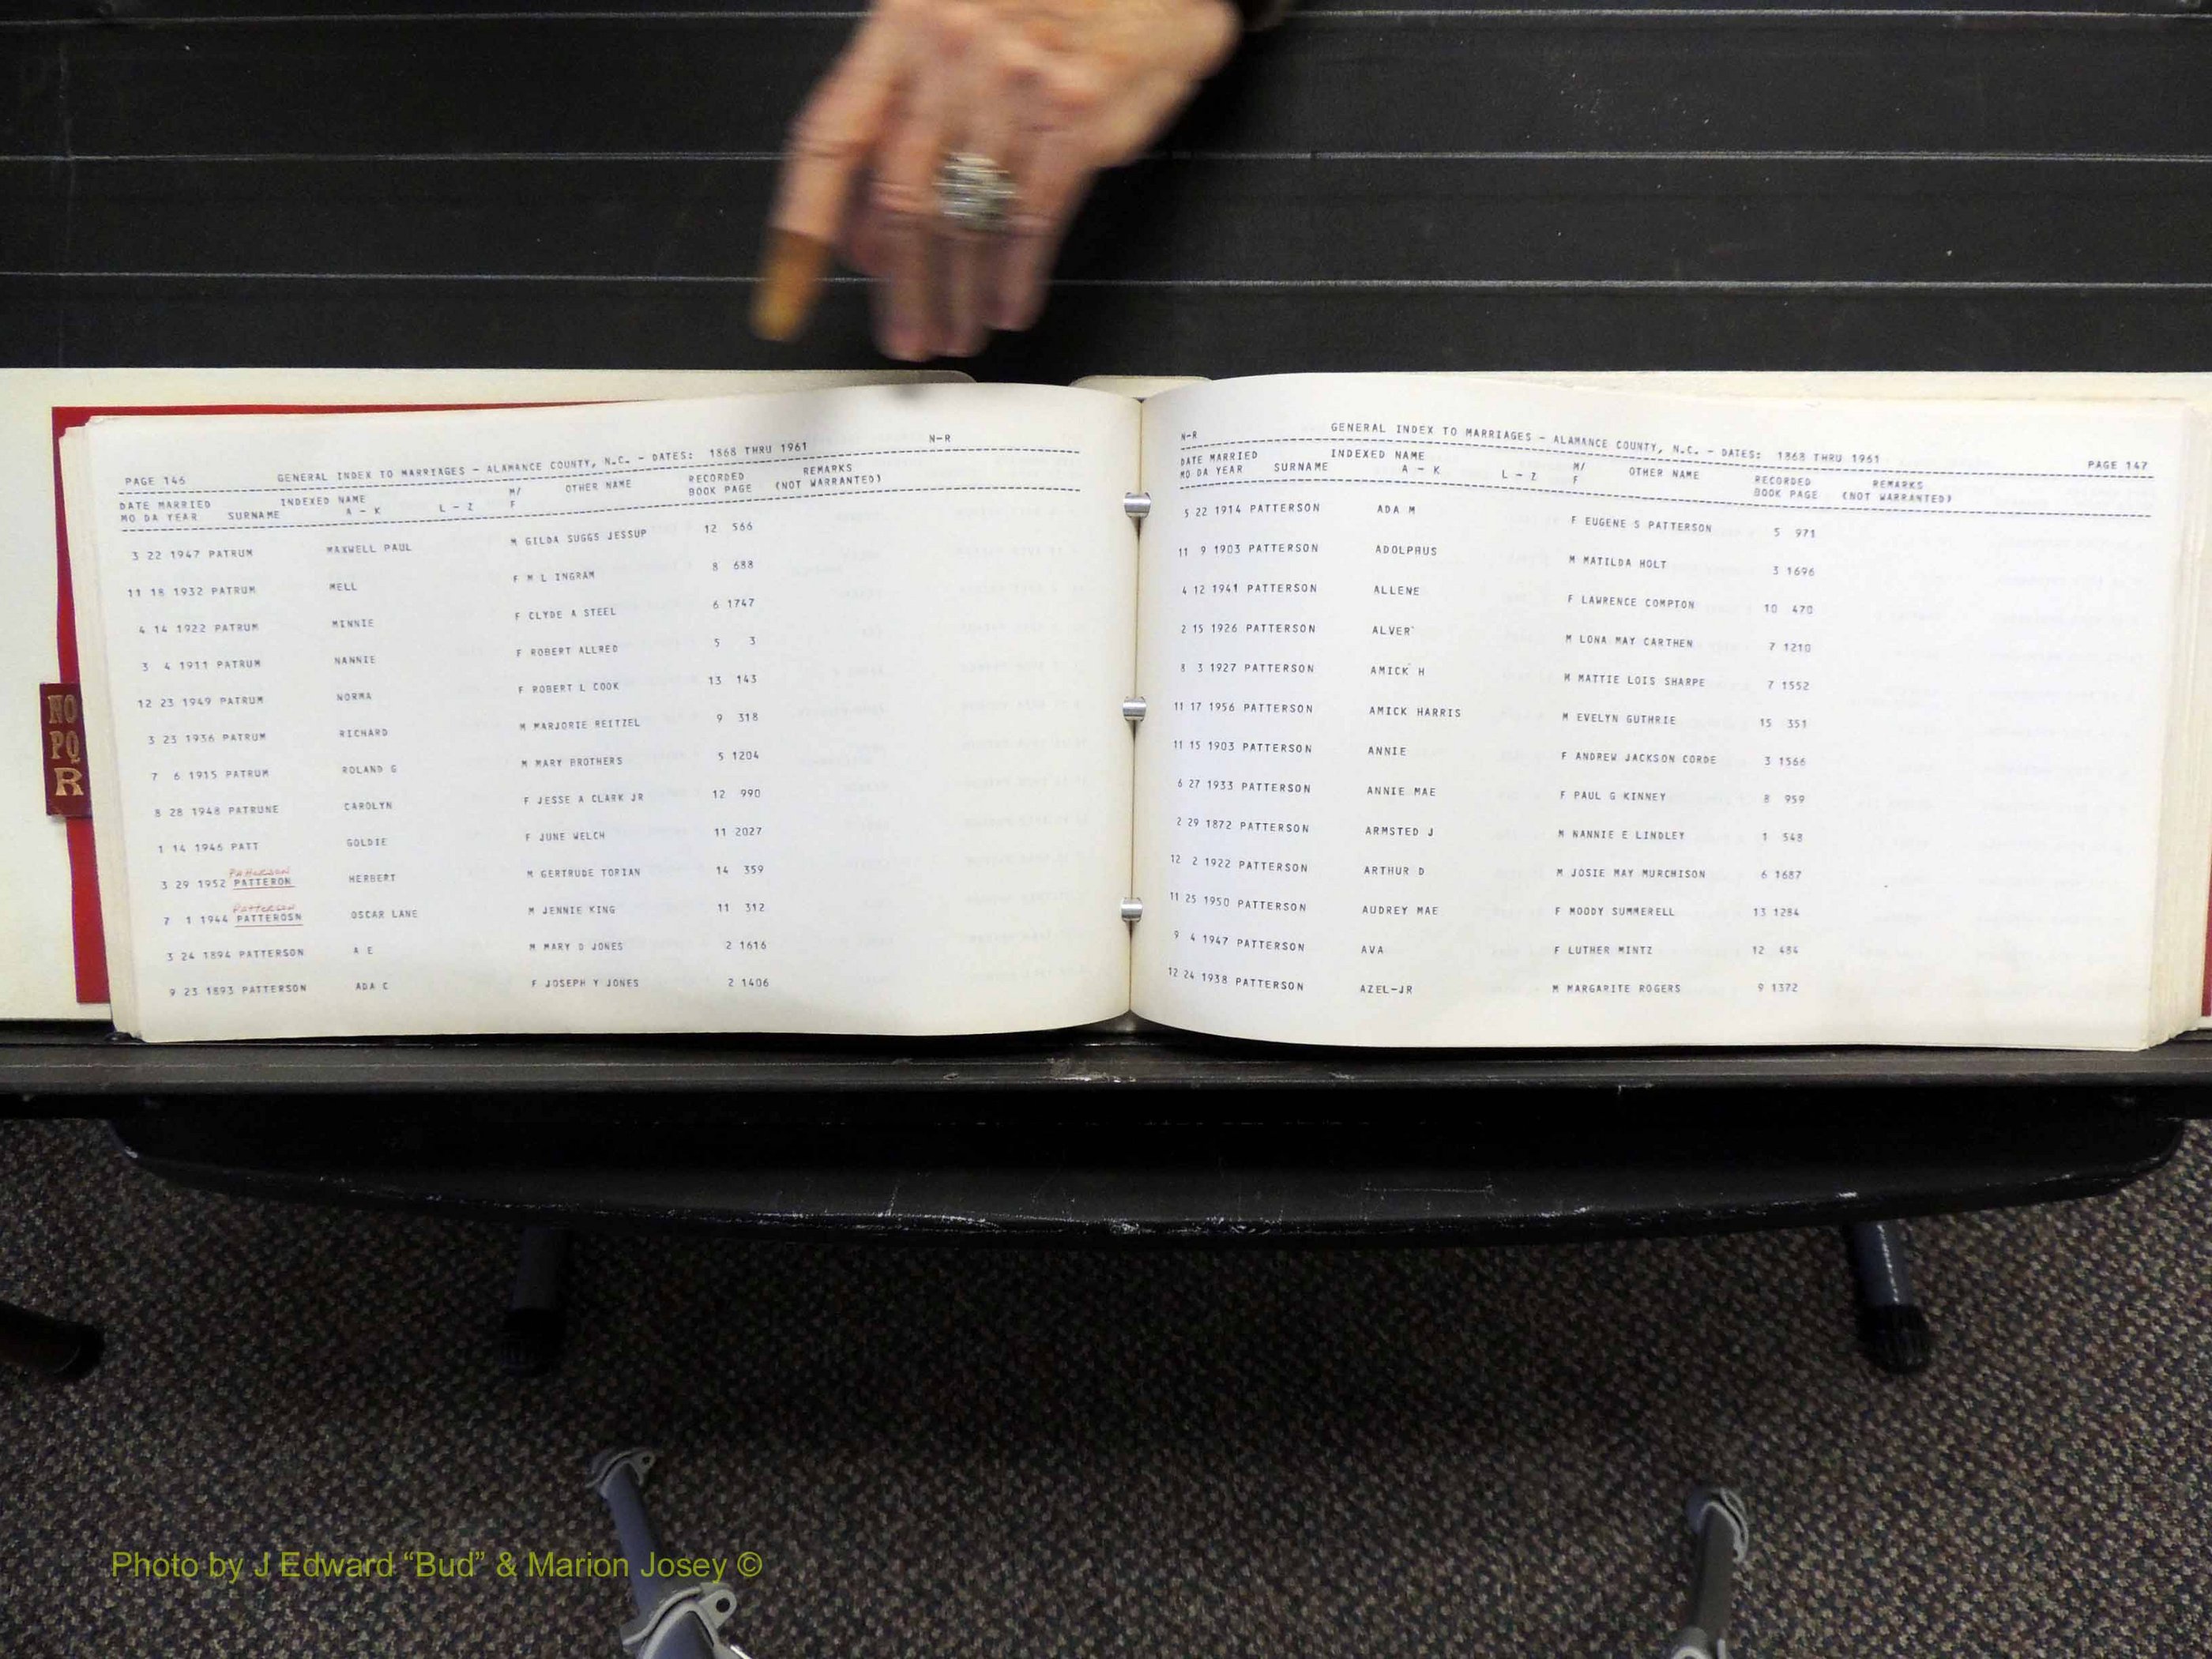 NO
PQ
R
PAGE 146 GENERAL INDEX TO MARRIAGES - ALAMANCE COUNTY, N.C. - DATES: 1868 THRU 1961 N-R
DATE MARRIED INDEXED NAME M/ OTHER NAME RECORDED REMARKS
MO DA YEAR SURNAME A - K L - Z F BOOK PAGE (NOT WARRANTED)
3 22 1947 PATRUM MAXWELL PAUL M GILDA SUGGS JESSUP 12 566
11 18 1932 PATRUM MELL F M L INGRAM 8 688
4 14 1922 PATRUM MINNIE F CLYDE A STEEL 6 1747
3 4 1911 PATRUM NANNIE F ROBERT ALLRED 5 3
12 23 1949 PATRUM NORMA F ROBERT L COOK 13 143
3 23 1936 PATRUM RICHARD M MARJORIE REITZEL 9 318
7 6 1915 PATRUM ROLAND G M MARY BROTHERS 5 1204
8 28 1948 PATRUNE CAROLYN F JESSE A CLARK JR 12 990
1 14 1946 PATT GOLDIE F JUNE WELCH 11 2027
Patterson
3 29 1952 PATTERON HERBERT M GERTRUDE TORIAN 14 359
Patterson
7 1 1944 PATTEROSN OSCAR LANE M JENNIE KING 11 312
3 24 1894 PATTERSON A E M MARY D JONES 2 1616
9 23 1893 PATTERSON ADA C F JOSEPH Y JONES 2 1406
N-R GENERAL INDEX TO MARRIAGES - ALAMANCE COUNTY, N.C. - DATES: 1868 THRU 1961 PAGE 147
DATE MARRIED INDEXED NAME M/ OTHER NAME RECORDED REMARKS
MO DA YEAR SURNAME A - K L - Z F BOOK PAGE (NOT WARRANTED)
5 22 1914 PATTERSON ADA M F EUGENE S PATTERSON 5 971
11 9 1903 PATTERSON ADOLPHUS M MATILDA HOLT 3 1696
4 12 1941 PATTERSON ALLENE F LAWRENCE COMPTON 10 470
2 15 1926 PATTERSON ALVER M LONA MAY CARTHEN 7 1210
8 3 1927 PATTERSON AMICK H M MATTIE LOIS SHARPE 7 1552
11 17 1956 PATTERSON AMICK HARRIS M EVELYN GUTHRIE 15 351
11 15 1903 PATTERSON ANNIE F ANDREW JACKSON CORDE 3 1566
6 27 1933 PATTERSON ANNIE MAE F PAUL G KINNEY 8 959
2 29 1872 PATTERSON ARMSTED J M NANNIE E LINDLEY 1 548
12 2 1922 PATTERSON ARTHUR D M JOSIE MAY MURCHISON 6 1687
11 25 1950 PATTERSON AUDREY MAE F MOODY SUMMERELL 13 1284
9 4 1947 PATTERSON AVA F LUTHER MINTZ 12 484
12 24 1938 PATTERSON AZEL-JR M MARGARITE ROGERS 9 1372
Photo by J Edward “Bud” & Marion Josey ©